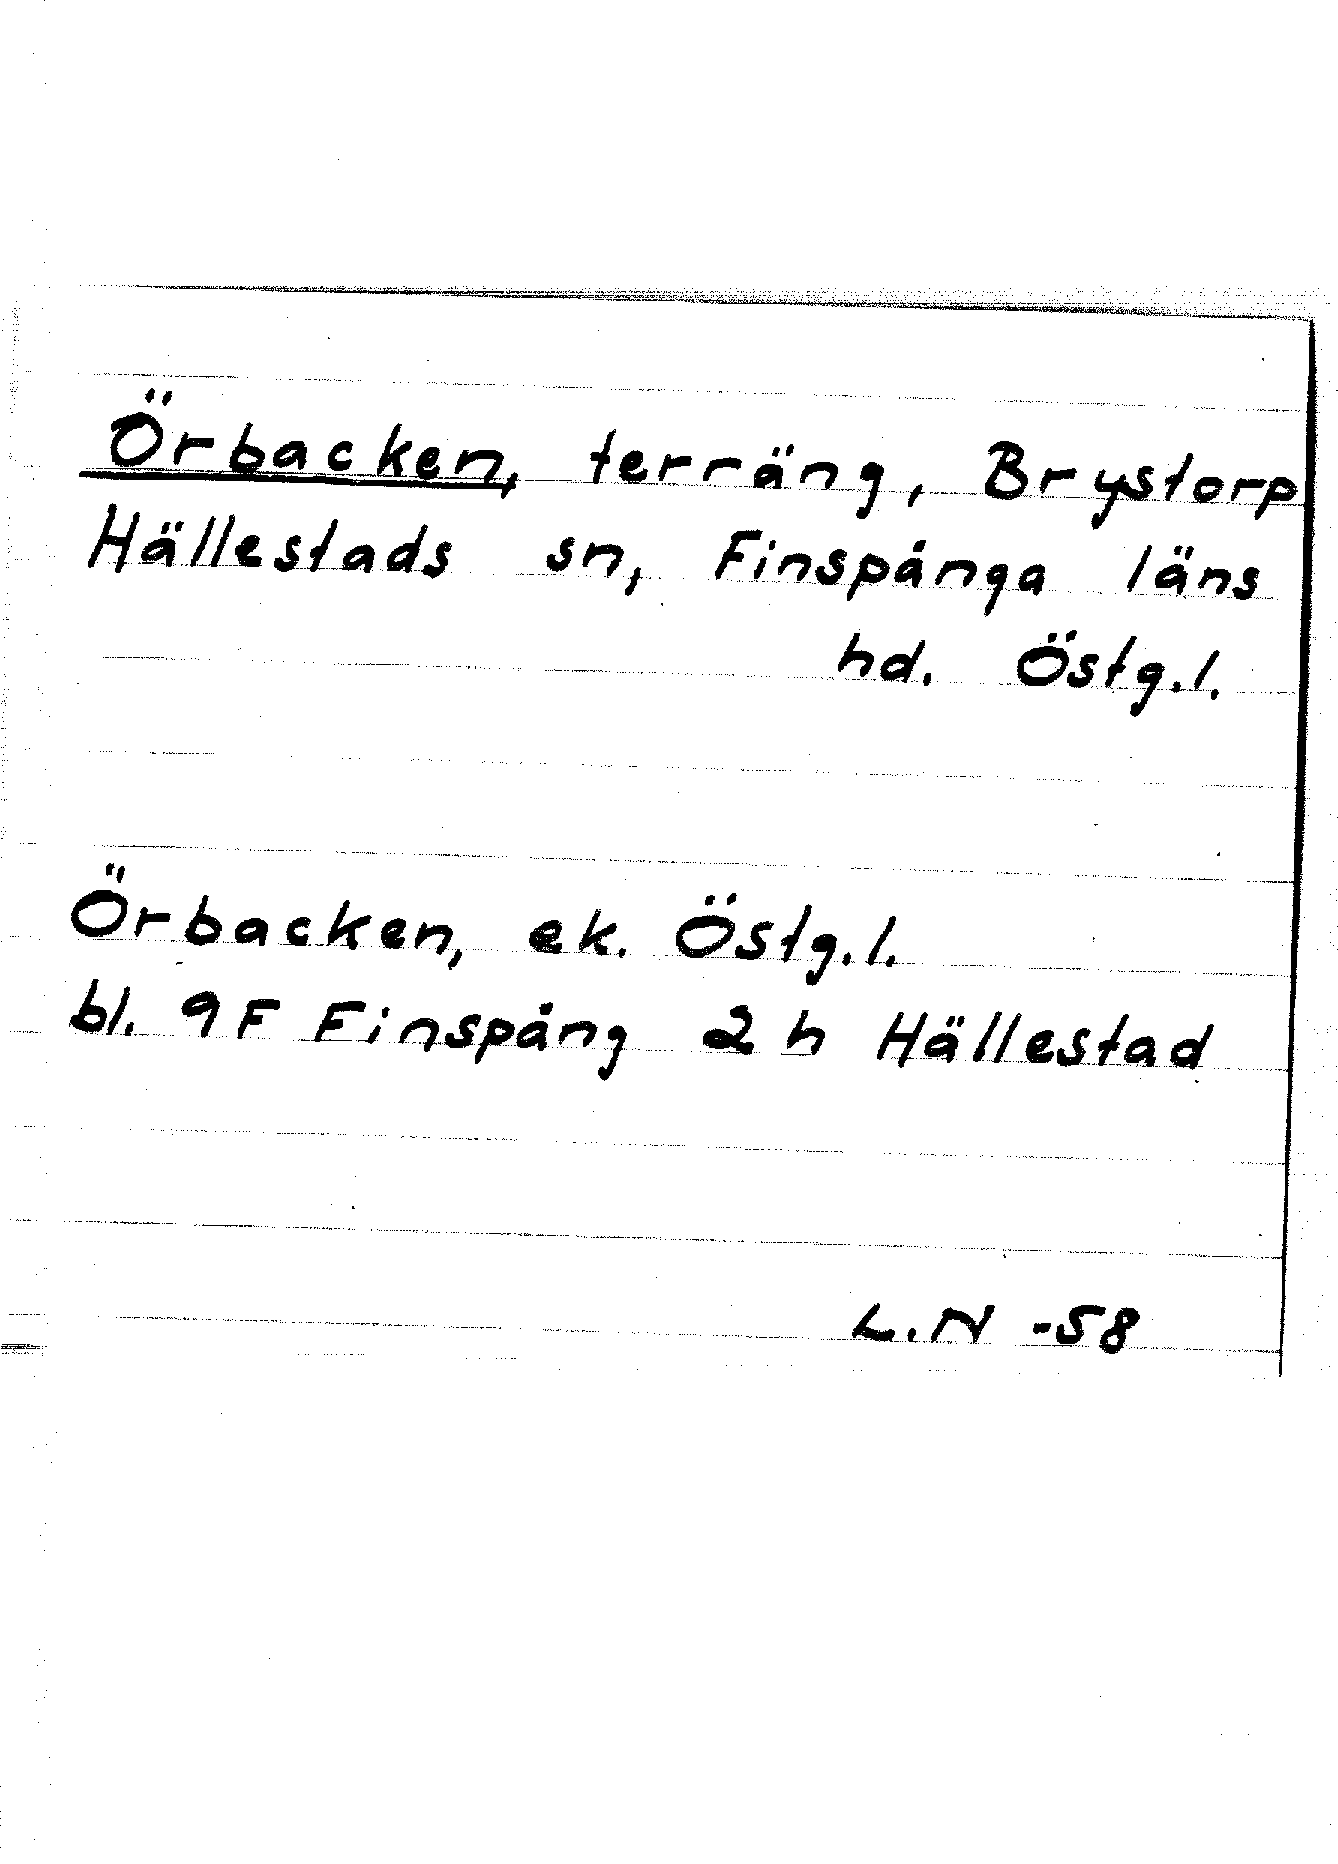 Örbacken, terräng, Brystorp
Hällestads sn, Finspånga läns
hd. Östg.l.
Örbacken, ek. Östg.l.
bl. 9F Finspång 2h Hällestad
L.N -58